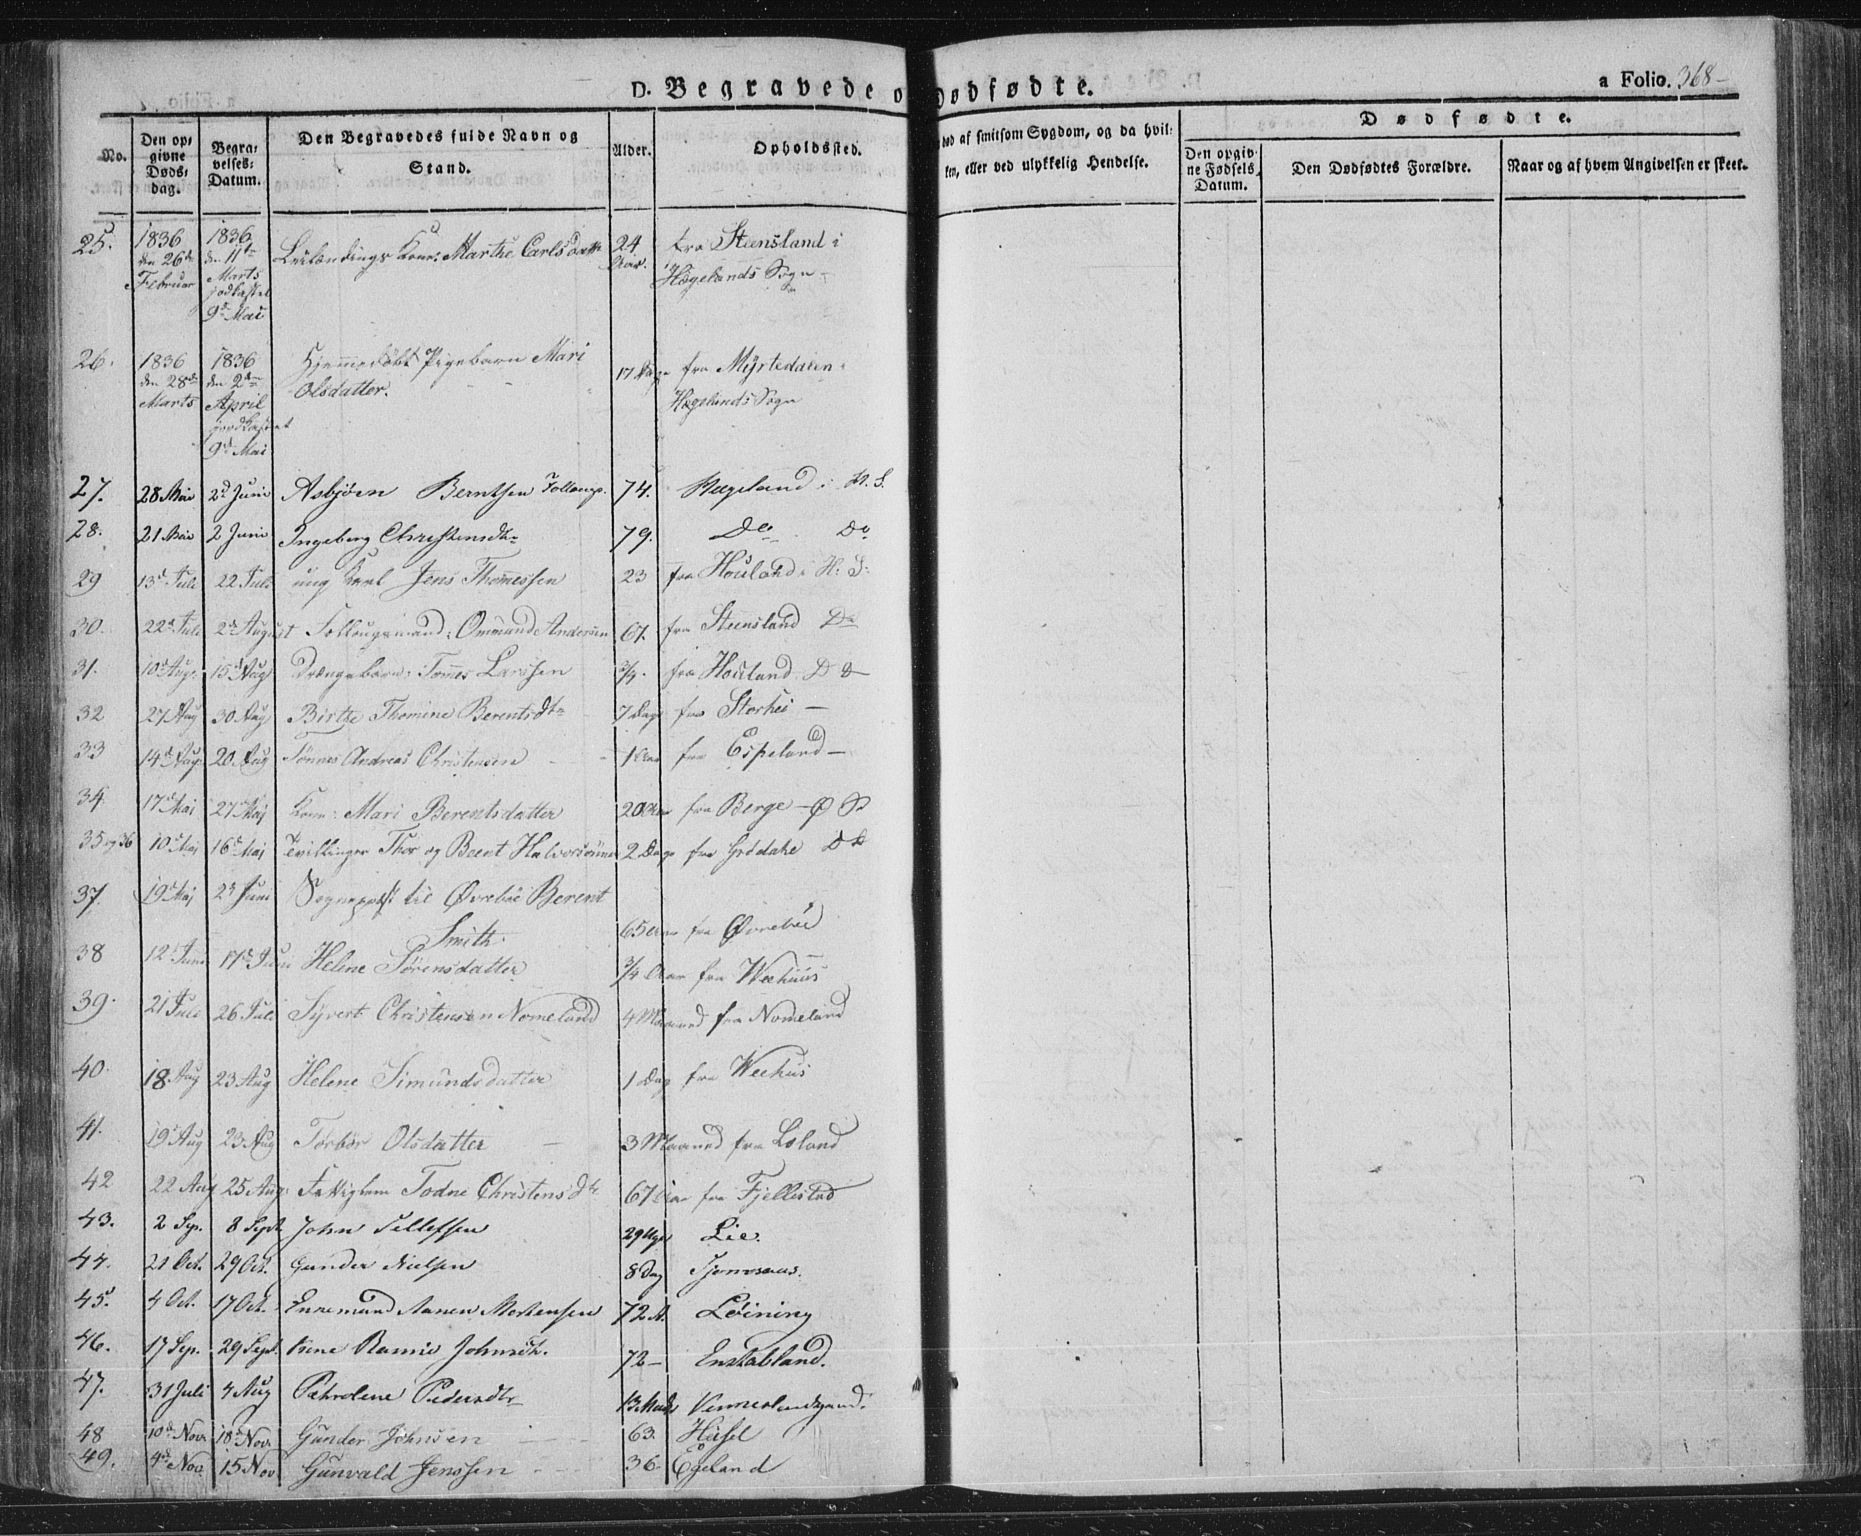 D. Begravede o
Dødfødte.
a Folio. 368-
No.
Den op=
givne
Døds=
dag.
Begra=
velses=
Datum.
Den Begravedes fulde Navn og
Stand.
Alder.
Opholdssted.
død af smitsom Sygdom, og da hvil=
ken, eller ved ulykkelig Hendelse.
Dødfødte.
Den opgiv=
ne Fødsels
Datum.
Den Dødfødtes Forældre.
Naar og af hvem Angivelsen er skeet.
25. 1836 den 26de Februar 1836 den 11te Marts jordkastet 9d Mai Leilændings Kone: Marthe Carlsdatt 24 Aar. fra Steensland i
Hægelands Sogn
26. 1836 den 28de Marts 1836 den 2den April jordkastet 9d Mai Hjemmedøbt Pigebarn Mari
Olsdatter. 17 Dage fra Myrtedalen i
Hægelands Sogn
27. 28 Mai 2d Juni Asbjøen Berntsen Follaugs. 74. Hægeland i H. S.
28. 21 Mai 2 Juni Ingeborg Christensdtr 79. Do Do
29 13d Juli 22 Juli ung Karl Jens Thomessen 23 fra Houland i H: S:
30. 22d Juli 2d August Follougsmand: Ommund Andersen 67. fra Steensland Do
31. 10d Aug. 15d Aug Drængebarn: Tomes Larssen 3/4. fra Houland D D
32 27 Aug 30 Aug Birthe Thomine Berentsdtr 7 Dage fra Storhei -
33 14d Aug 20 Aug Tønnes Andreas Christensen 1 Aar fra Espeland -
34 17d Mai 27d Maj Kone: Mari Berentsdatter 20 Aar fra Berge - Ø S
35 og 36 10d Maj 16d Maj Tvillinger Thor og Beent Halvorsønner 2 Dage fra Grødahe D D
37. 19d Maj 2d Juni Sognepræst til Øvrebøe Berent
Smith 65 Aar fra Øvrebøe
38 12d Juni 17d Juni Helene Sørensdatter 3/4 Aar fra Weehuus
39. 21 Juli 26 Juli Syvert Christensen Nomeland 4 Maaned fra Nomeland
40. 18 Aug 23 Aug Helene Simundsdatter 1 Dag fra Weehus
41. 19d Aug 23 Aug Torbør Olsdatter 3 Maaned fra Loland
42 22 Aug 25 Aug. Fattiglem Todne Christensdtr 67 Aar fra Fjellestad
43. 2 Sep. 8 Sept John Tellefsen 29 Uger Lie.
44. 21 Oct. 29 Oct. Gunder Nielsen 8 Dag Tjomsaas.
45. 4 Oct. 17 Oct. Ennemand Aanen Mortensen 72 A. Løining
46. 17 Sep. 29 Sept. Kone Ramie Johnsdtr. 72 - Enstabland.
47. 31 Juli 4 Aug Pethrolene Pedersdtr 13 Maan Venneslandsgaard.
48 10d Nov. 18d Nov. Gunder Johnsen 63. Husel
49. 4d Nov 15 Nov Gunvald Jenssen 36 Egeland